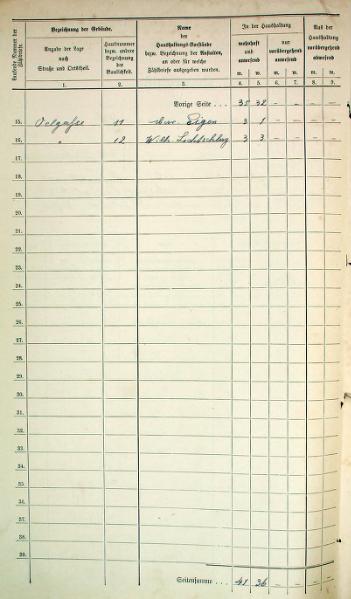 Laufende Nummer der Zählbriefe.
Bezeichnung der Gebäude.
Angabe der Lage
nach
Straße und Ortstheil.
Hausnummer
bezw. andere
Bezeichnung
der
Baulichkeit.
Name
der
Haushaltungs-Vorstände
bezw. Bezeichnung der Anstalten,
an oder für welche
Zählbriefe ausgegeben wurden.
In der Haushaltung
wohnhaft
und
anwesend
nur
vorübergehend
anwesend
Aus der
Haushaltung
vorübergehend
abwesend
m. w. m. w. m. w.
1. 2. 3. 4. 5. 6. 7. 8. 9.
Vorige Seite . . . 35 32 - - - -
15. 11 Eigen 3 1 - - - -
16. " 12 Wilh. 3 3 - - - -
17.
18.
19.
20.
21.
22.
23.
24.
25.
26.
27.
28.
29.
30.
31.
32.
33.
34.
35.
36.
37.
38.
39.
Seitensumme . . . 41 36 - - - -